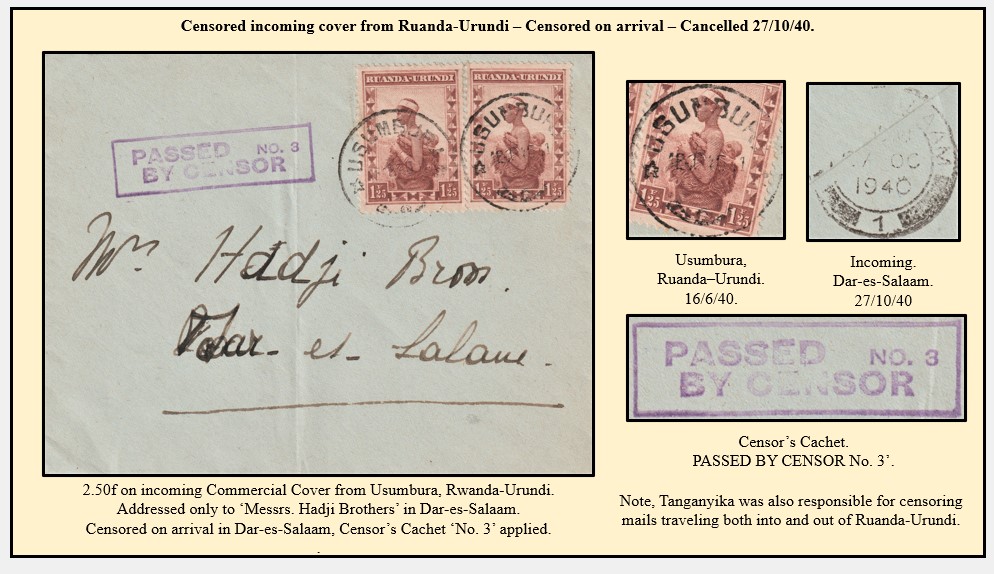 Censored incoming cover from Ruanda-Urundi – Censored on arrival – Cancelled 27/10/40.
RUANDA-URUNDI RUANDA-URUNDI
PASSED NO. 3
BY CENSOR
USUMBU
USUMBU
1F25 1F25 1F25 1F25
Mrs. Hadji Bros.
Dar-es-Salam.
USUMBU
1F25 1F25
AAM
OC
1940
1
Usumbura,
Ruanda–Urundi.
16/6/40.
Incoming.
Dar-es-Salaam.
27/10/40
PASSED NO. 3
BY CENSOR
Censor’s Cachet.
PASSED BY CENSOR No. 3’.
2.50f on incoming Commercial Cover from Usumbura, Rwanda-Urundi.
Addressed only to ‘Messrs. Hadji Brothers’ in Dar-es-Salaam.
Censored on arrival in Dar-es-Salaam, Censor’s Cachet ‘No. 3’ applied.
Note, Tanganyika was also responsible for censoring
mails traveling both into and out of Ruanda-Urundi.